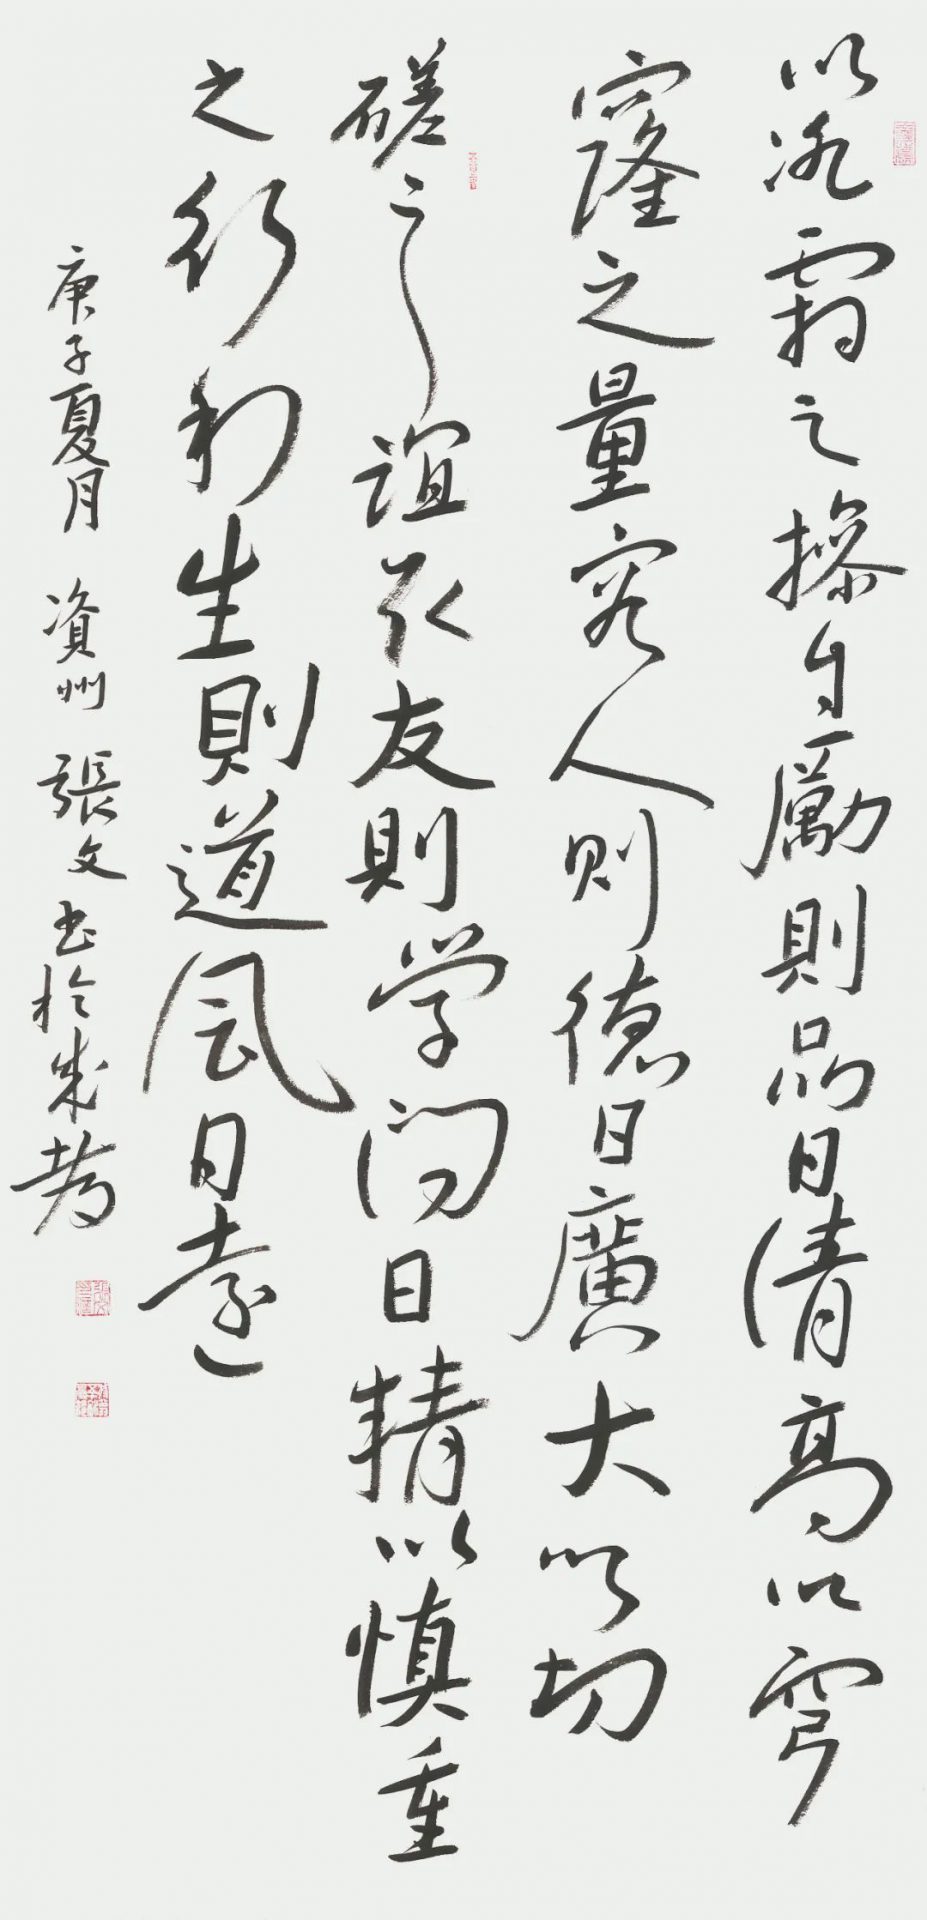 以冰霜之操自勵則品日清高以穹
窿之量容人則德日廣大以切
磋之誼取友則学问日精以慎重
之行利生則道风日遠
庚子夏月 資州 張文书於成都